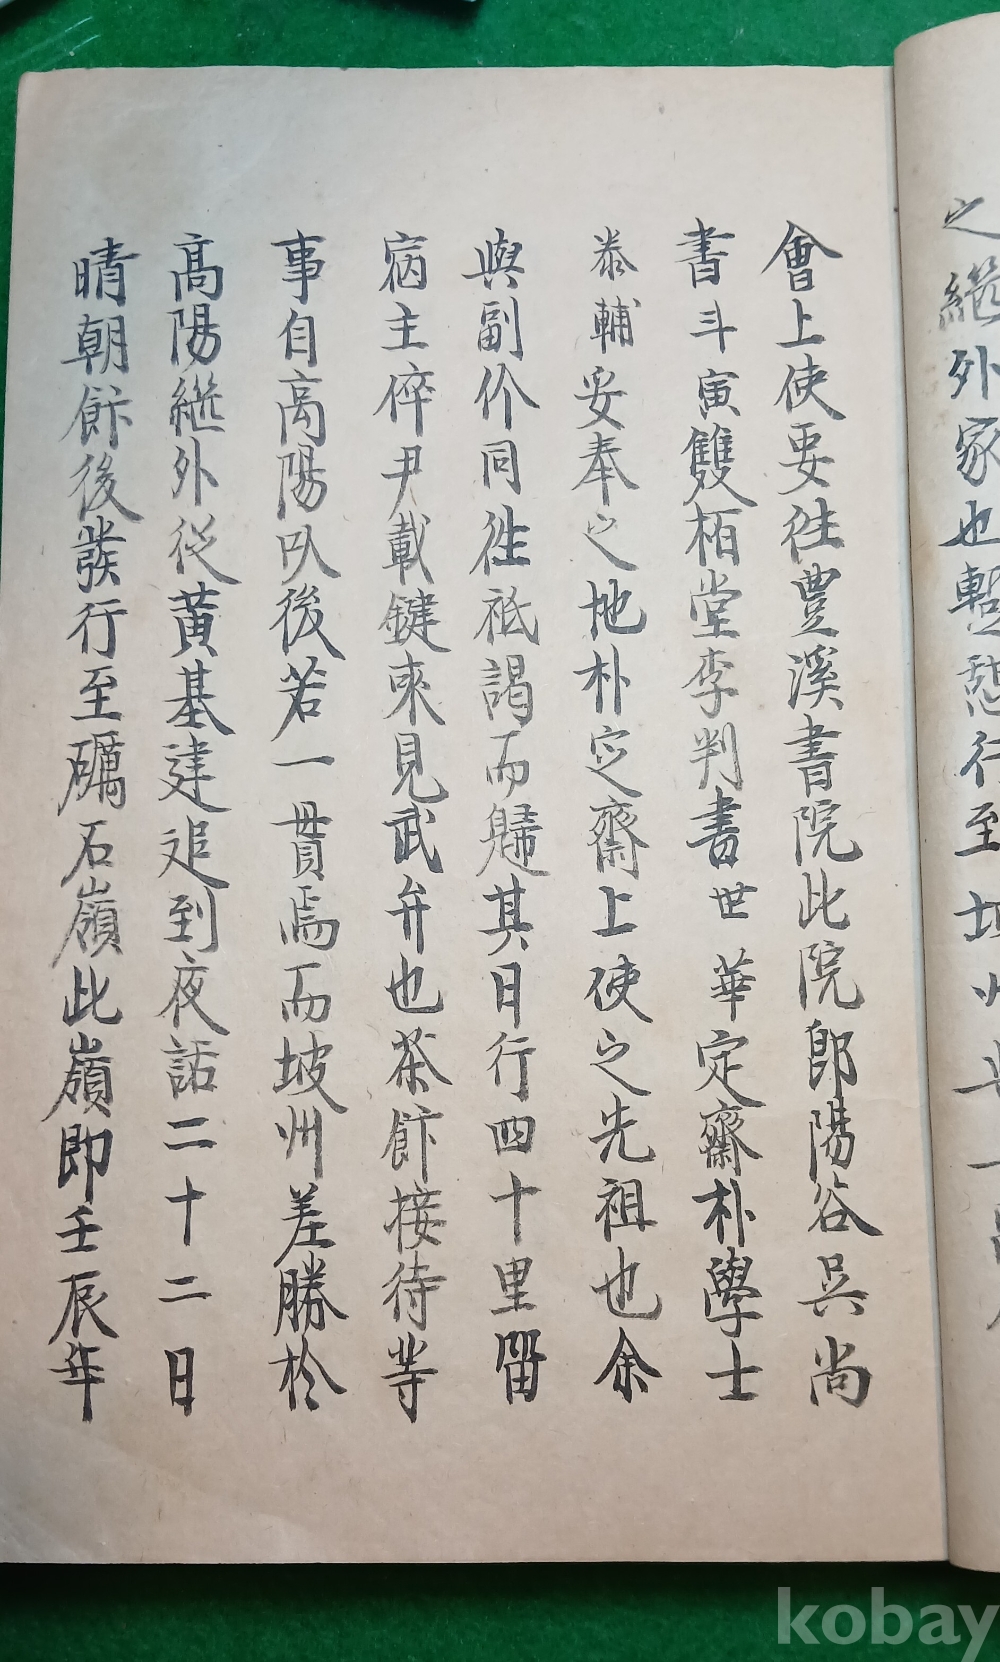 之繼外家也暫憩行至坡州
會上使要徃豊溪書院此院郎陽谷吳尚
書斗寅雙栢堂李判書世華定齋朴學士
泰輔妥奉之地朴定齋上使之先祖也余
與副价同徃祗謁而歸其日行四十里留
宿主倅尹載鍵來見武弁也茶餠接待等
事自高陽以後若一貫焉而坡州差勝於
高陽繼外從黃基建追到夜話二十二日
晴朝餠後發行至礪石嶺此嶺即壬辰年
kobay